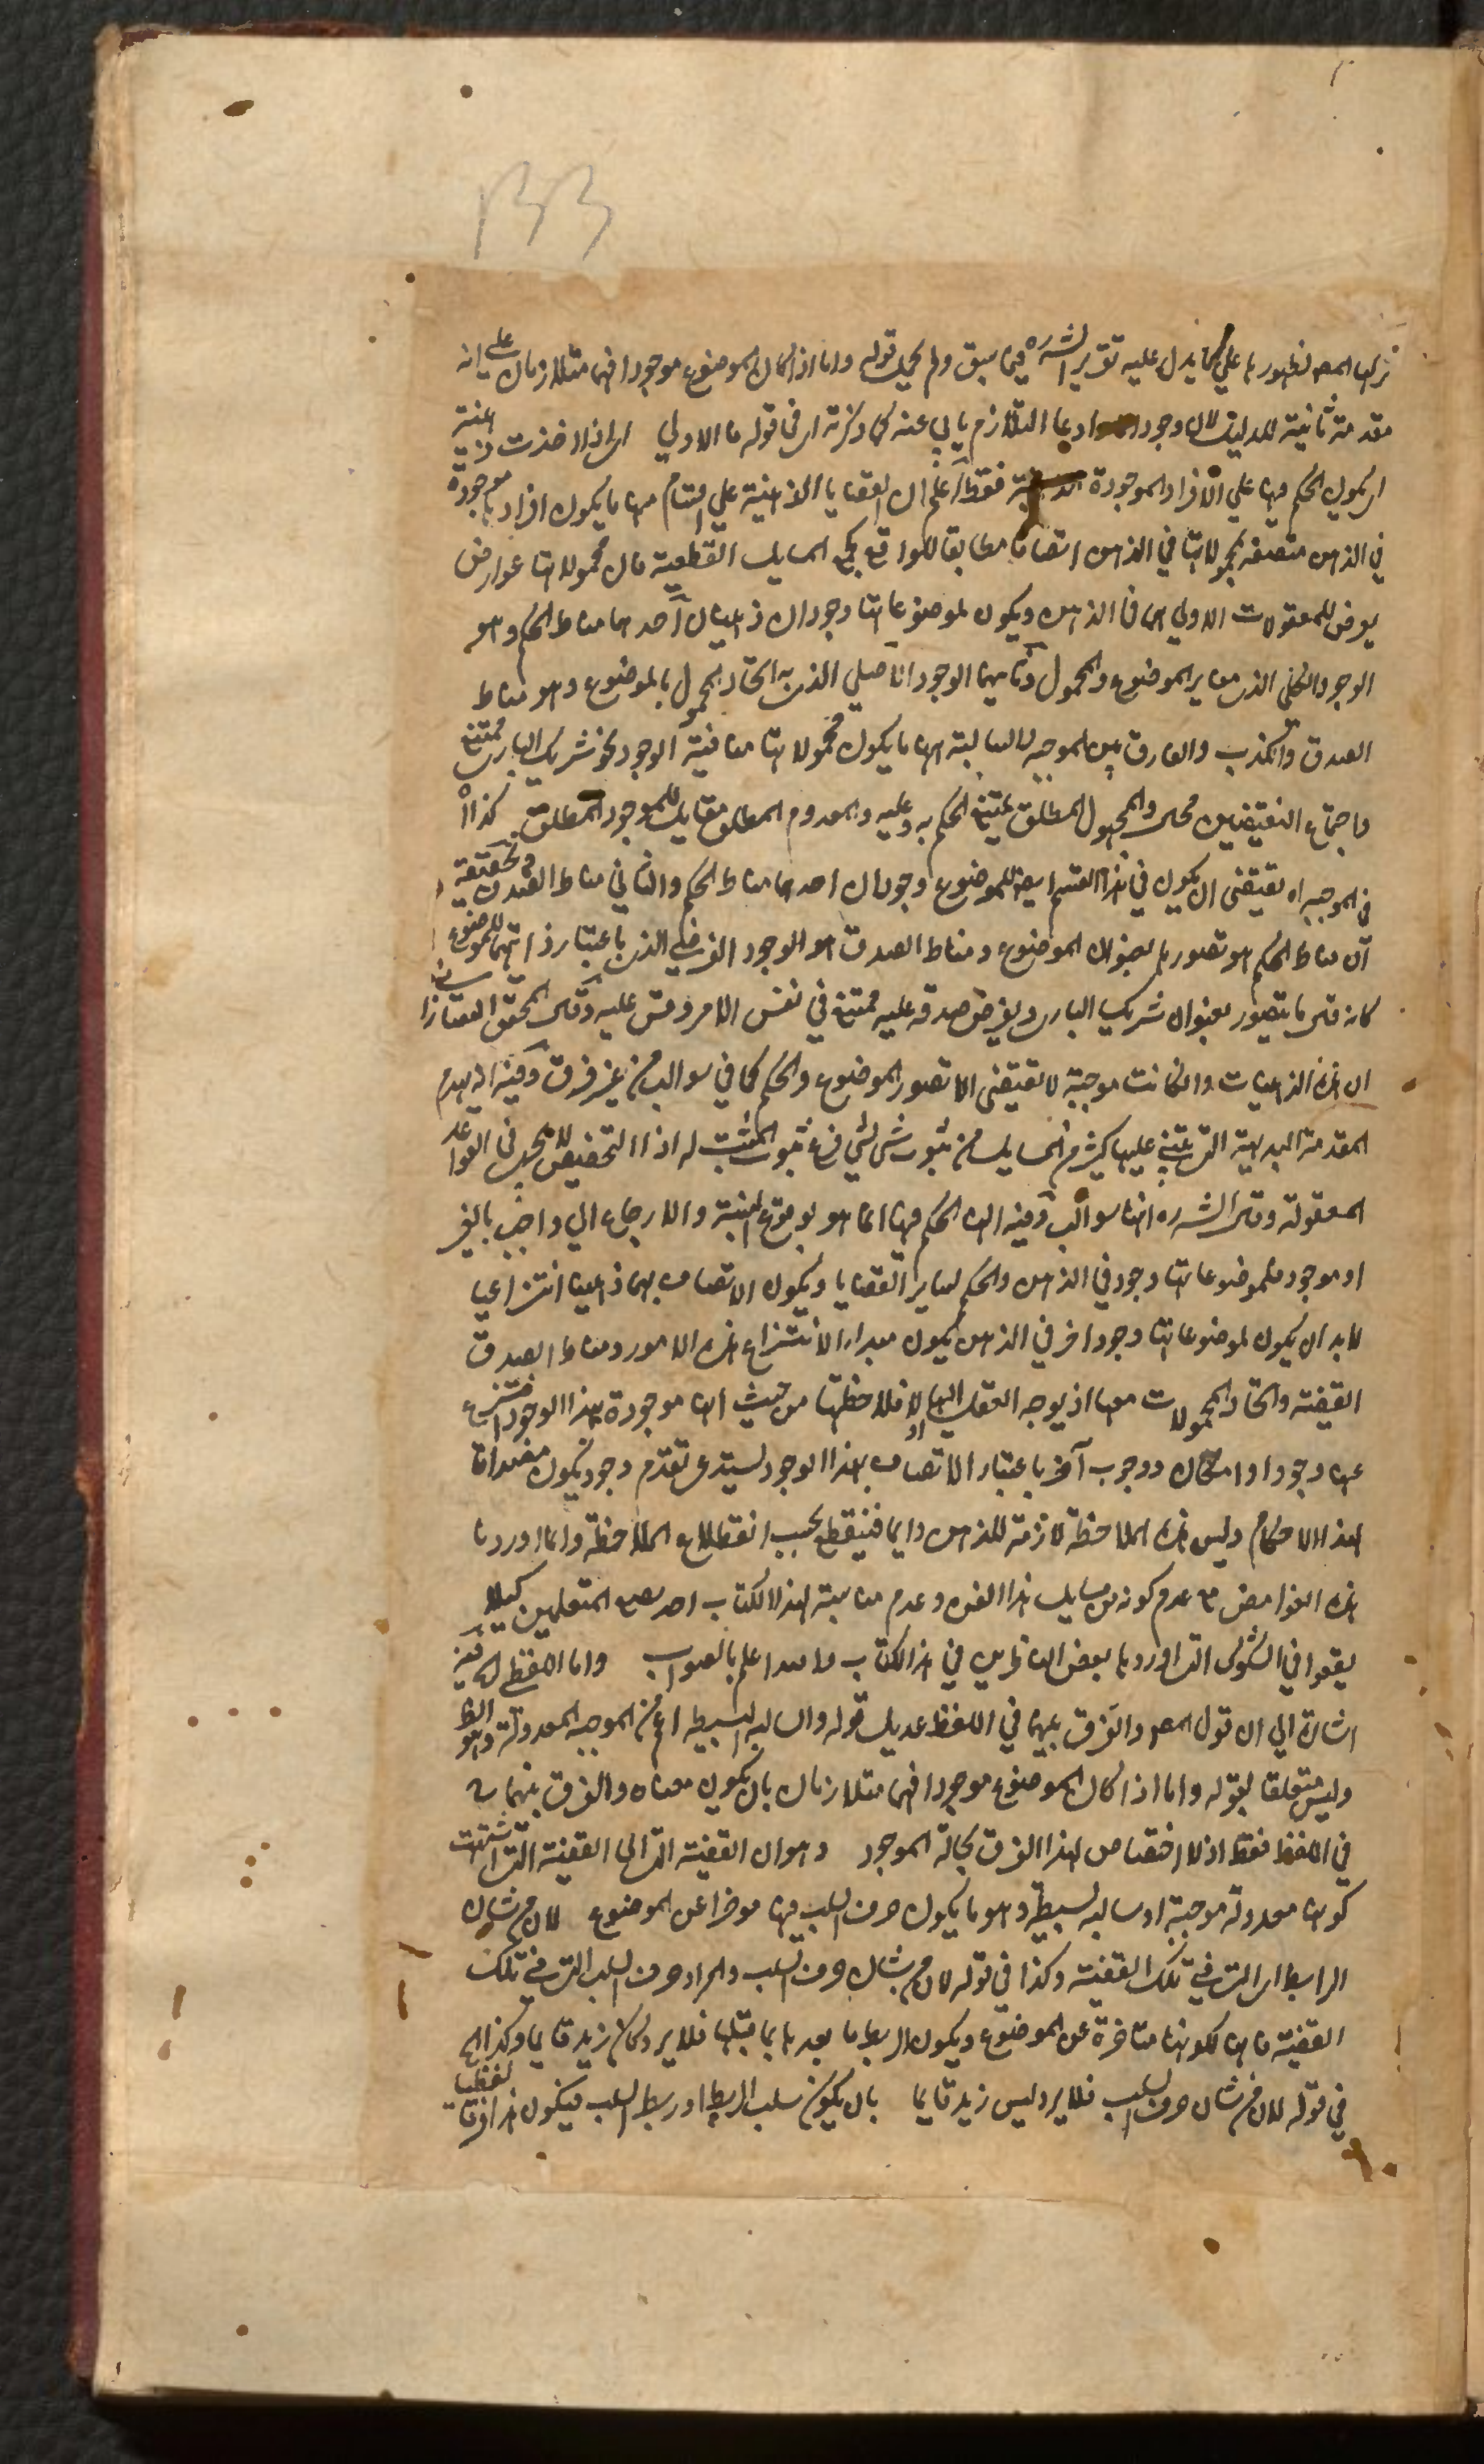 تركها المصـ لظهورها علي ما يدل عليه تقرير الشره فيما سبق ولم يجعل قوله واما اذا كان الموضوع موجودا فهما متلازمان علي انه
مقدمة ثانية للدليل لان وجود ادعا التلازم يابي عنه كما ذكرته اى في قوله ما الاولي اى اذا اخذت ذهنية
اى يكون الحكم فيها علي الافراد الموجودة فقط اعلم ان القضايا الذهنية علي اقسام منها ما يكون افرادها موجودة
في الذهن متصفة بمحمولاتها في الذهن اتصافا مطابقا للواقع كجميع المسايل القطعية فان محمولاتها عوارض
يعرض للمعقولات الاولي اى في الذهن ويكون لموضوعاتها وجودان ذهنيان احدهما مناط الحكم وهو
الوجود الظلي الذى يغاير الموضوع والمحمول وثانيهما الوجود الاصلي الذى به اتحاد المحمول بالموضوع وهو مناط
الصدق والكذب والفارق بين الموجبة والسالبة ومنها ما يكون محمولاتها منافية الوجود نحو شريك البارى ممتنع
واجتماع النقيضين محال والمجهول المطلق يمتنع الحكم به وعليه والمعدوم المطلق مقابل للموجود المطلق كذا
في الموجبة اه يقتضى ان يكون في هذا القسم ايضا للموضوع وجودان احدهما مناط الحكم والثاني مناط الصدق وتحقيقه
ان مناط الحكم هو تصورها بعنوان الموضوع ومناط الصدق هو الوجود الفرضي الذى باعتبار ذاتها للموضوع
كانه قال ما يتصور بعنوان شريك البارى ويفرض صدقه عليه ممتنع في نفس الامر وقس عليه وقال المحقق التفتازاني
ان هذه الذهنيات وان كانت موجبة لا تقتضى الا تصور الموضوع والحكم كما في سوالب من غير فرق وفيه انه يهدم
المقدمة البديهية التى يبتني عليها كثير من المسايل من ثبوت شى لشي فرع ثبوت المثبت له اذ التخصيص لا يجرى في القواعد
المعقولة وقال الشره انها سوالب وفيه ان الحكم فيها انما هو بوقوع النسبة والارجاع الي واجب بالغير
او موجود فلموضوعاتها وجود في الذهن والحكم كساير القضايا ويكون الاتصاف بها ذهنيا انتزاعيا
لابد ان يكون لموضوعاتها وجود اخر في الذهن يكون مبدا الانتزاع هذه الامور ومناط الصدق
القضية واتحاد المحمولات معها اذ يوجه العقل اليها اولا فلاحظها من حيث انها موجودة بهذا الوجود انتزع
عنها وجود او امكان ووجوب اخر باعتبار الاتصاف بهذا الوجود يستدعي تقدم وجود يكون مصداقا
لهذا الاحكام وليس هذه الملاحظة لازمة للذهن دايما فينقطع بحسب انقطاع الملاحظة وانما اوردنا
هذه الغوامض مع عدم كونه من مسايل هذا الفن وعدم مناسبة لهذا الكتاب احد بعض المتعلمين كيلا
يقعوا في الشكوك التى اوردها بعض الناظرين في هذا الكتاب والله اعلم بالصواب واما اللفظي اه فيه
اشارة الي ان قول المصـ والفرق بينهما في اللفظ عديل قوله والسالبة البسيطة اعم من الموجبة المعدولة وهو الظ
وليس متعلقا بقوله واما اذا كان الموضوع موجودا فهما متلازمان بان يكون معناه والفرق بينهما ح
في اللفظ فقط اذ لا اختصاص لهذا الفرق بحالة الموجود وهو ان القضية التى اى القضية التى اشتبهت
كونها معدولة موجبة او سالبة بسيطة وهو ما يكون حرف السلب فيها موخرا عن الموضوع لان من شان
الرابطه اى التى في تلك القضية وكذا في قوله لان من شان حرف السلب والمراد حرف السلب التى في تلك
القضية فانها لكونها متاخرة عن الموضوع ويكون الربط ما بعدها بما قبلها فلا يرد كان زيد قايما وكذا الحـ
في قوله لان من شان حرف السلب فلا يرد ليس زيد قايما بان يكون سلب الربط او ربط السلب فيكون هذا فرقا لفظيا